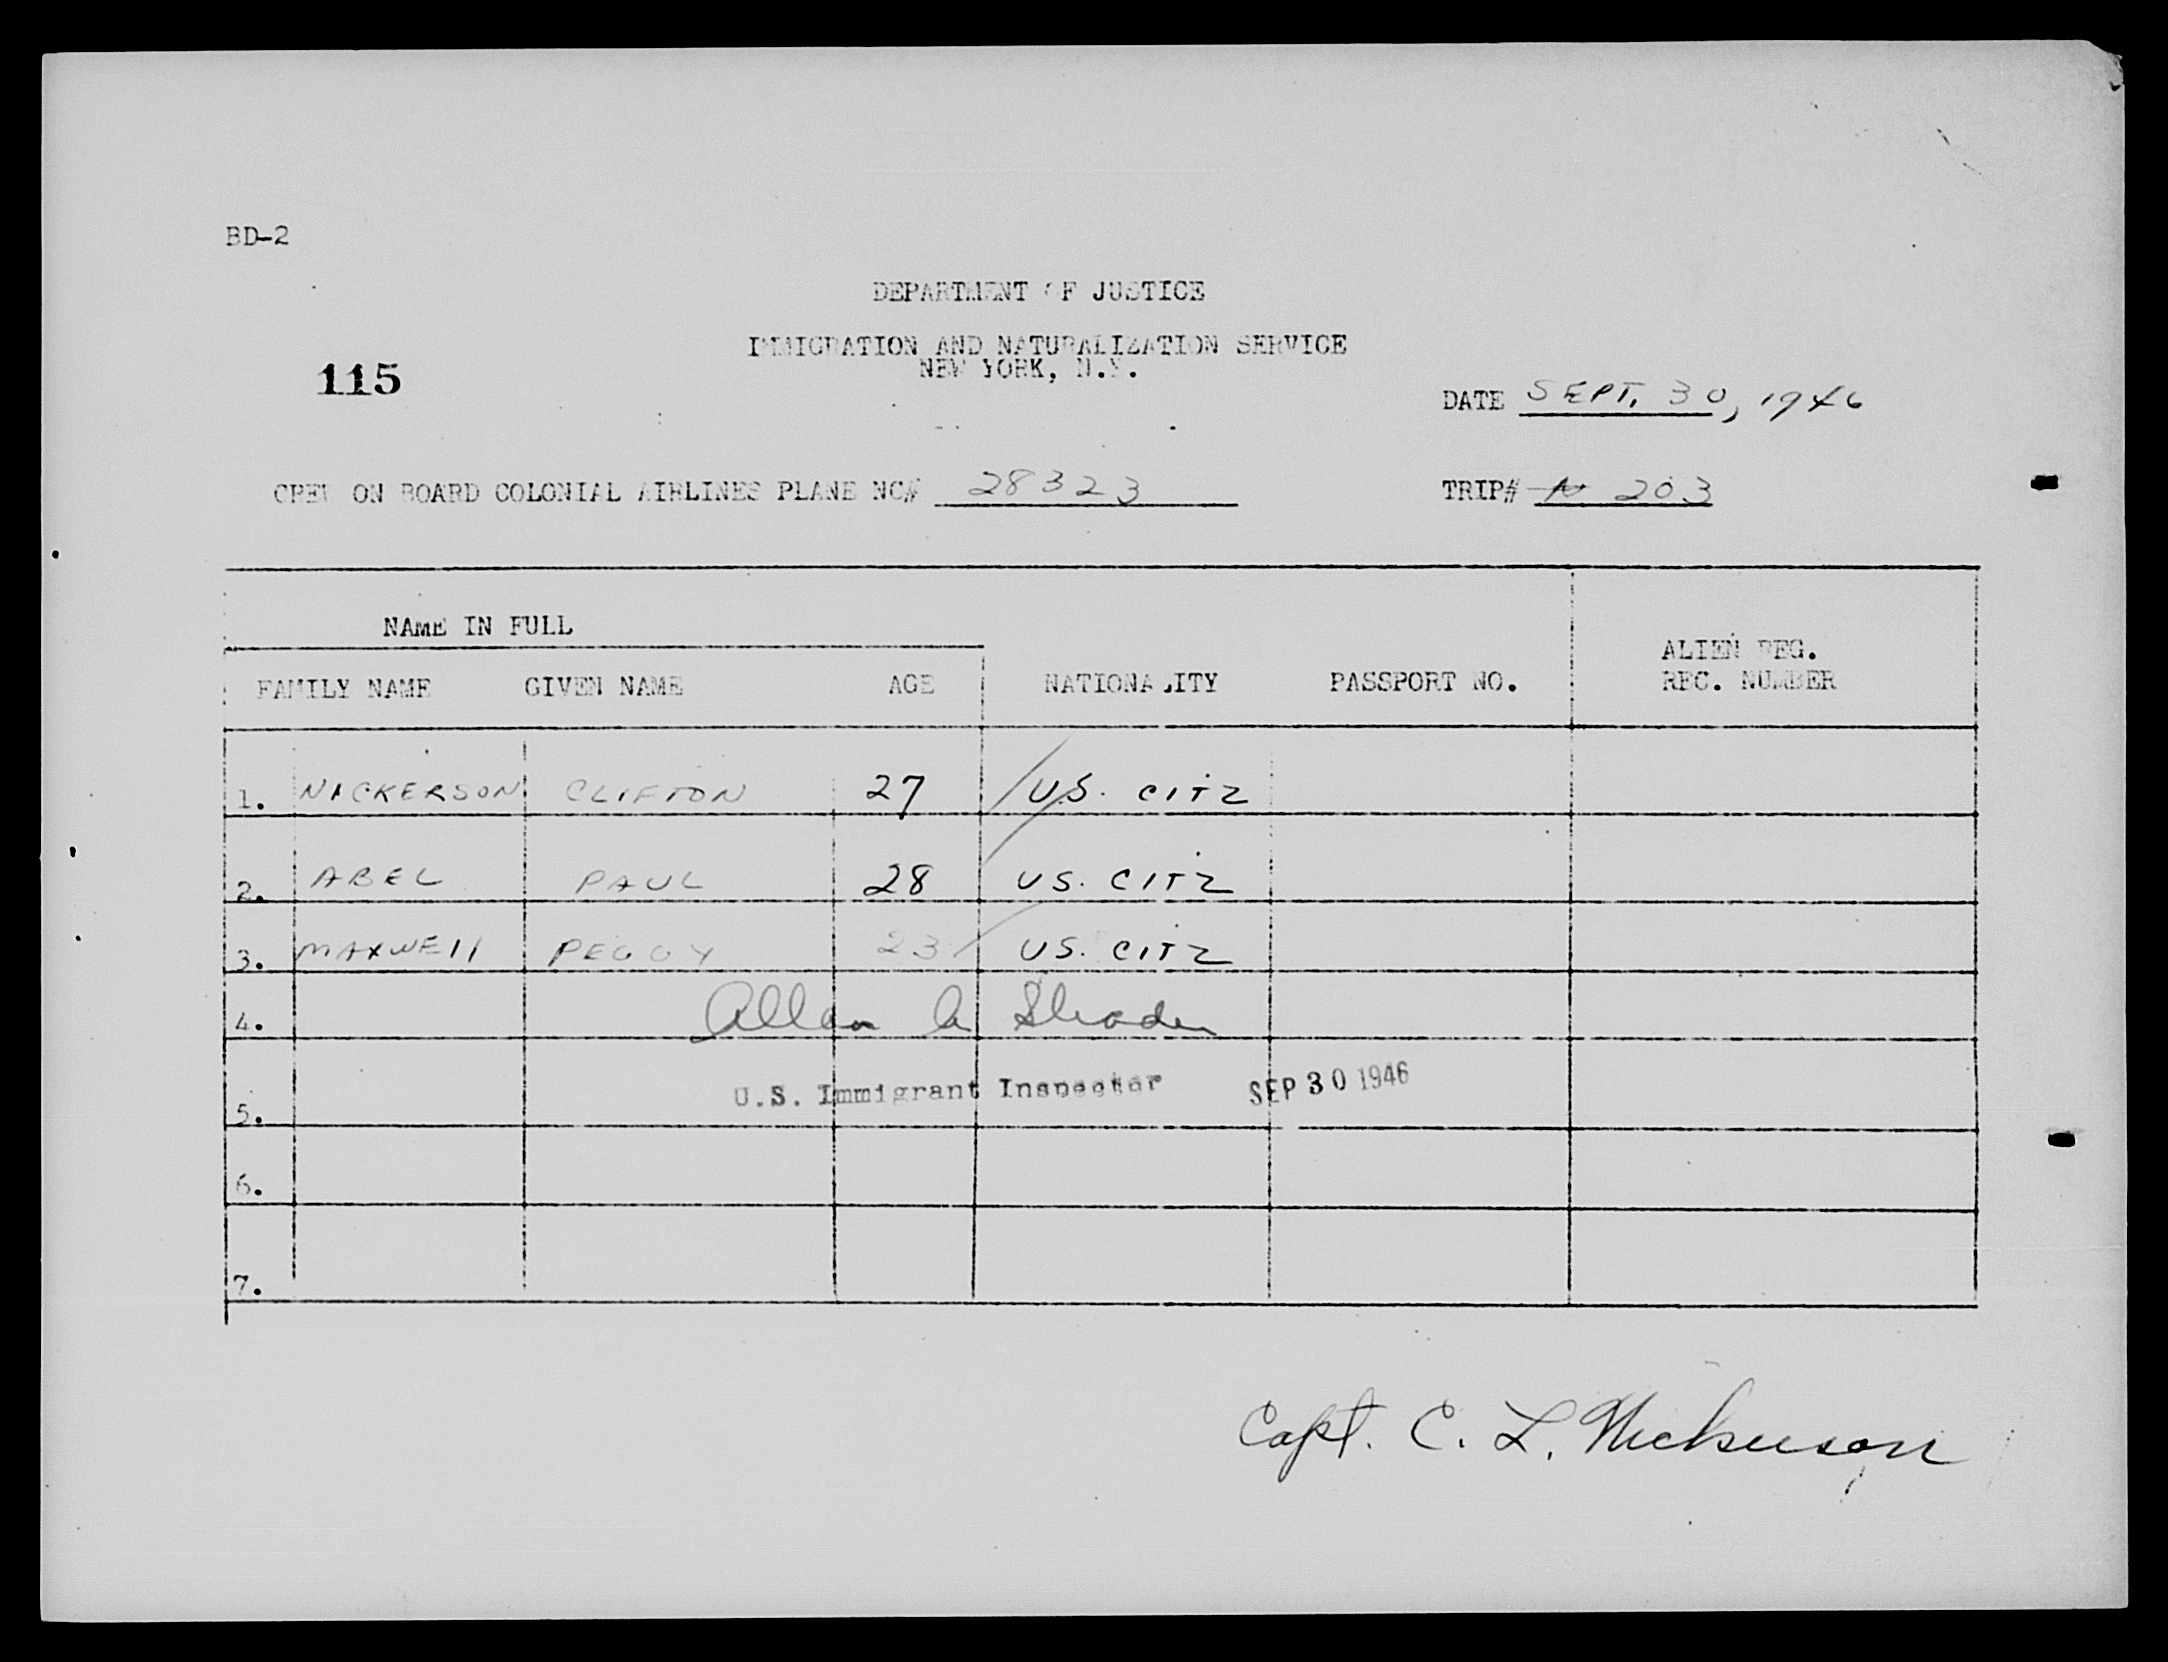 BD-2
DEPARTMENT OF JUSTICE
IMMIGRATION AND NATURALIZATION SERVICE
NEW YORK, N.Y.
115
DATE SEPT. 30, 1946
CREW ON BOARD COLONIAL AIRLINES PLANE NC# 28323 TRIP# N 203
NAME IN FULL
FAMILY NAME GIVEN NAME AGE NATIONALITY PASSPORT NO. ALIEN REG. REC. NUMBER
1. NICKERSON CLIFTON 27 U.S. CITZ
2. ABEL PAUL 28 US. CITZ
3. MAXWEll PEGGY 23 US. CITZ
4. Allen
5. U.S. Immigrant Inspector SEP 30 1946
6.
7.
Capt. C. L. Nickerson